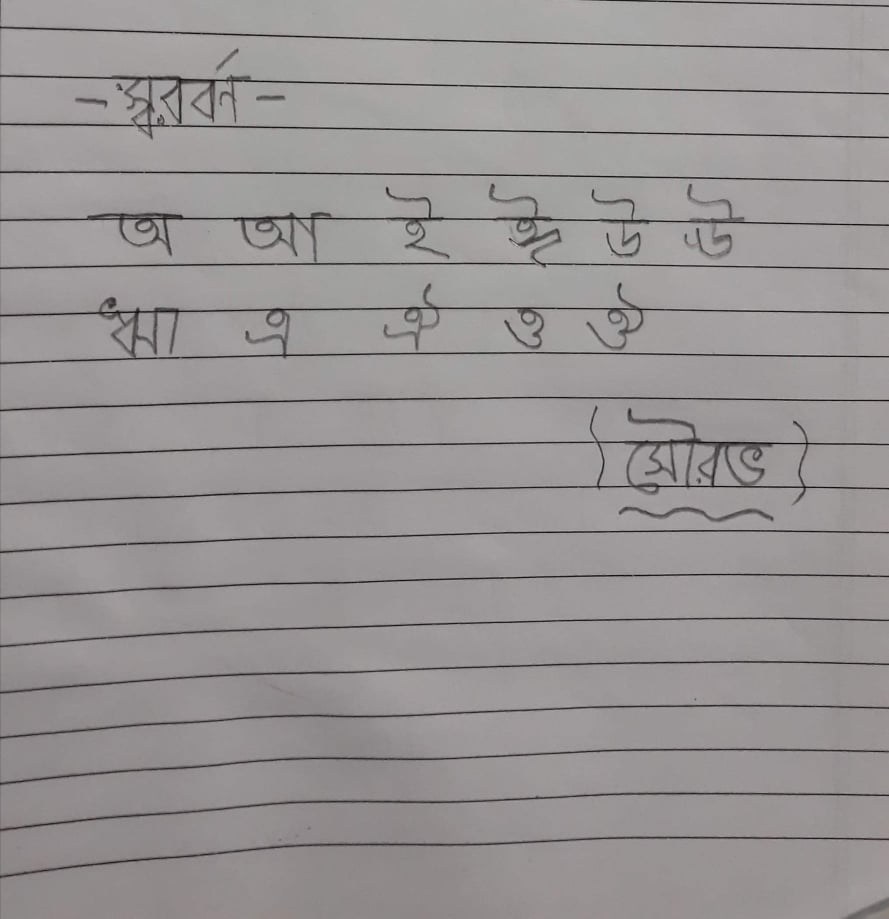 - স্বরবর্ন -
অ আ ই ঈ উ ঊ
ঋ এ ঐ ও ঔ
( সৌরভ )